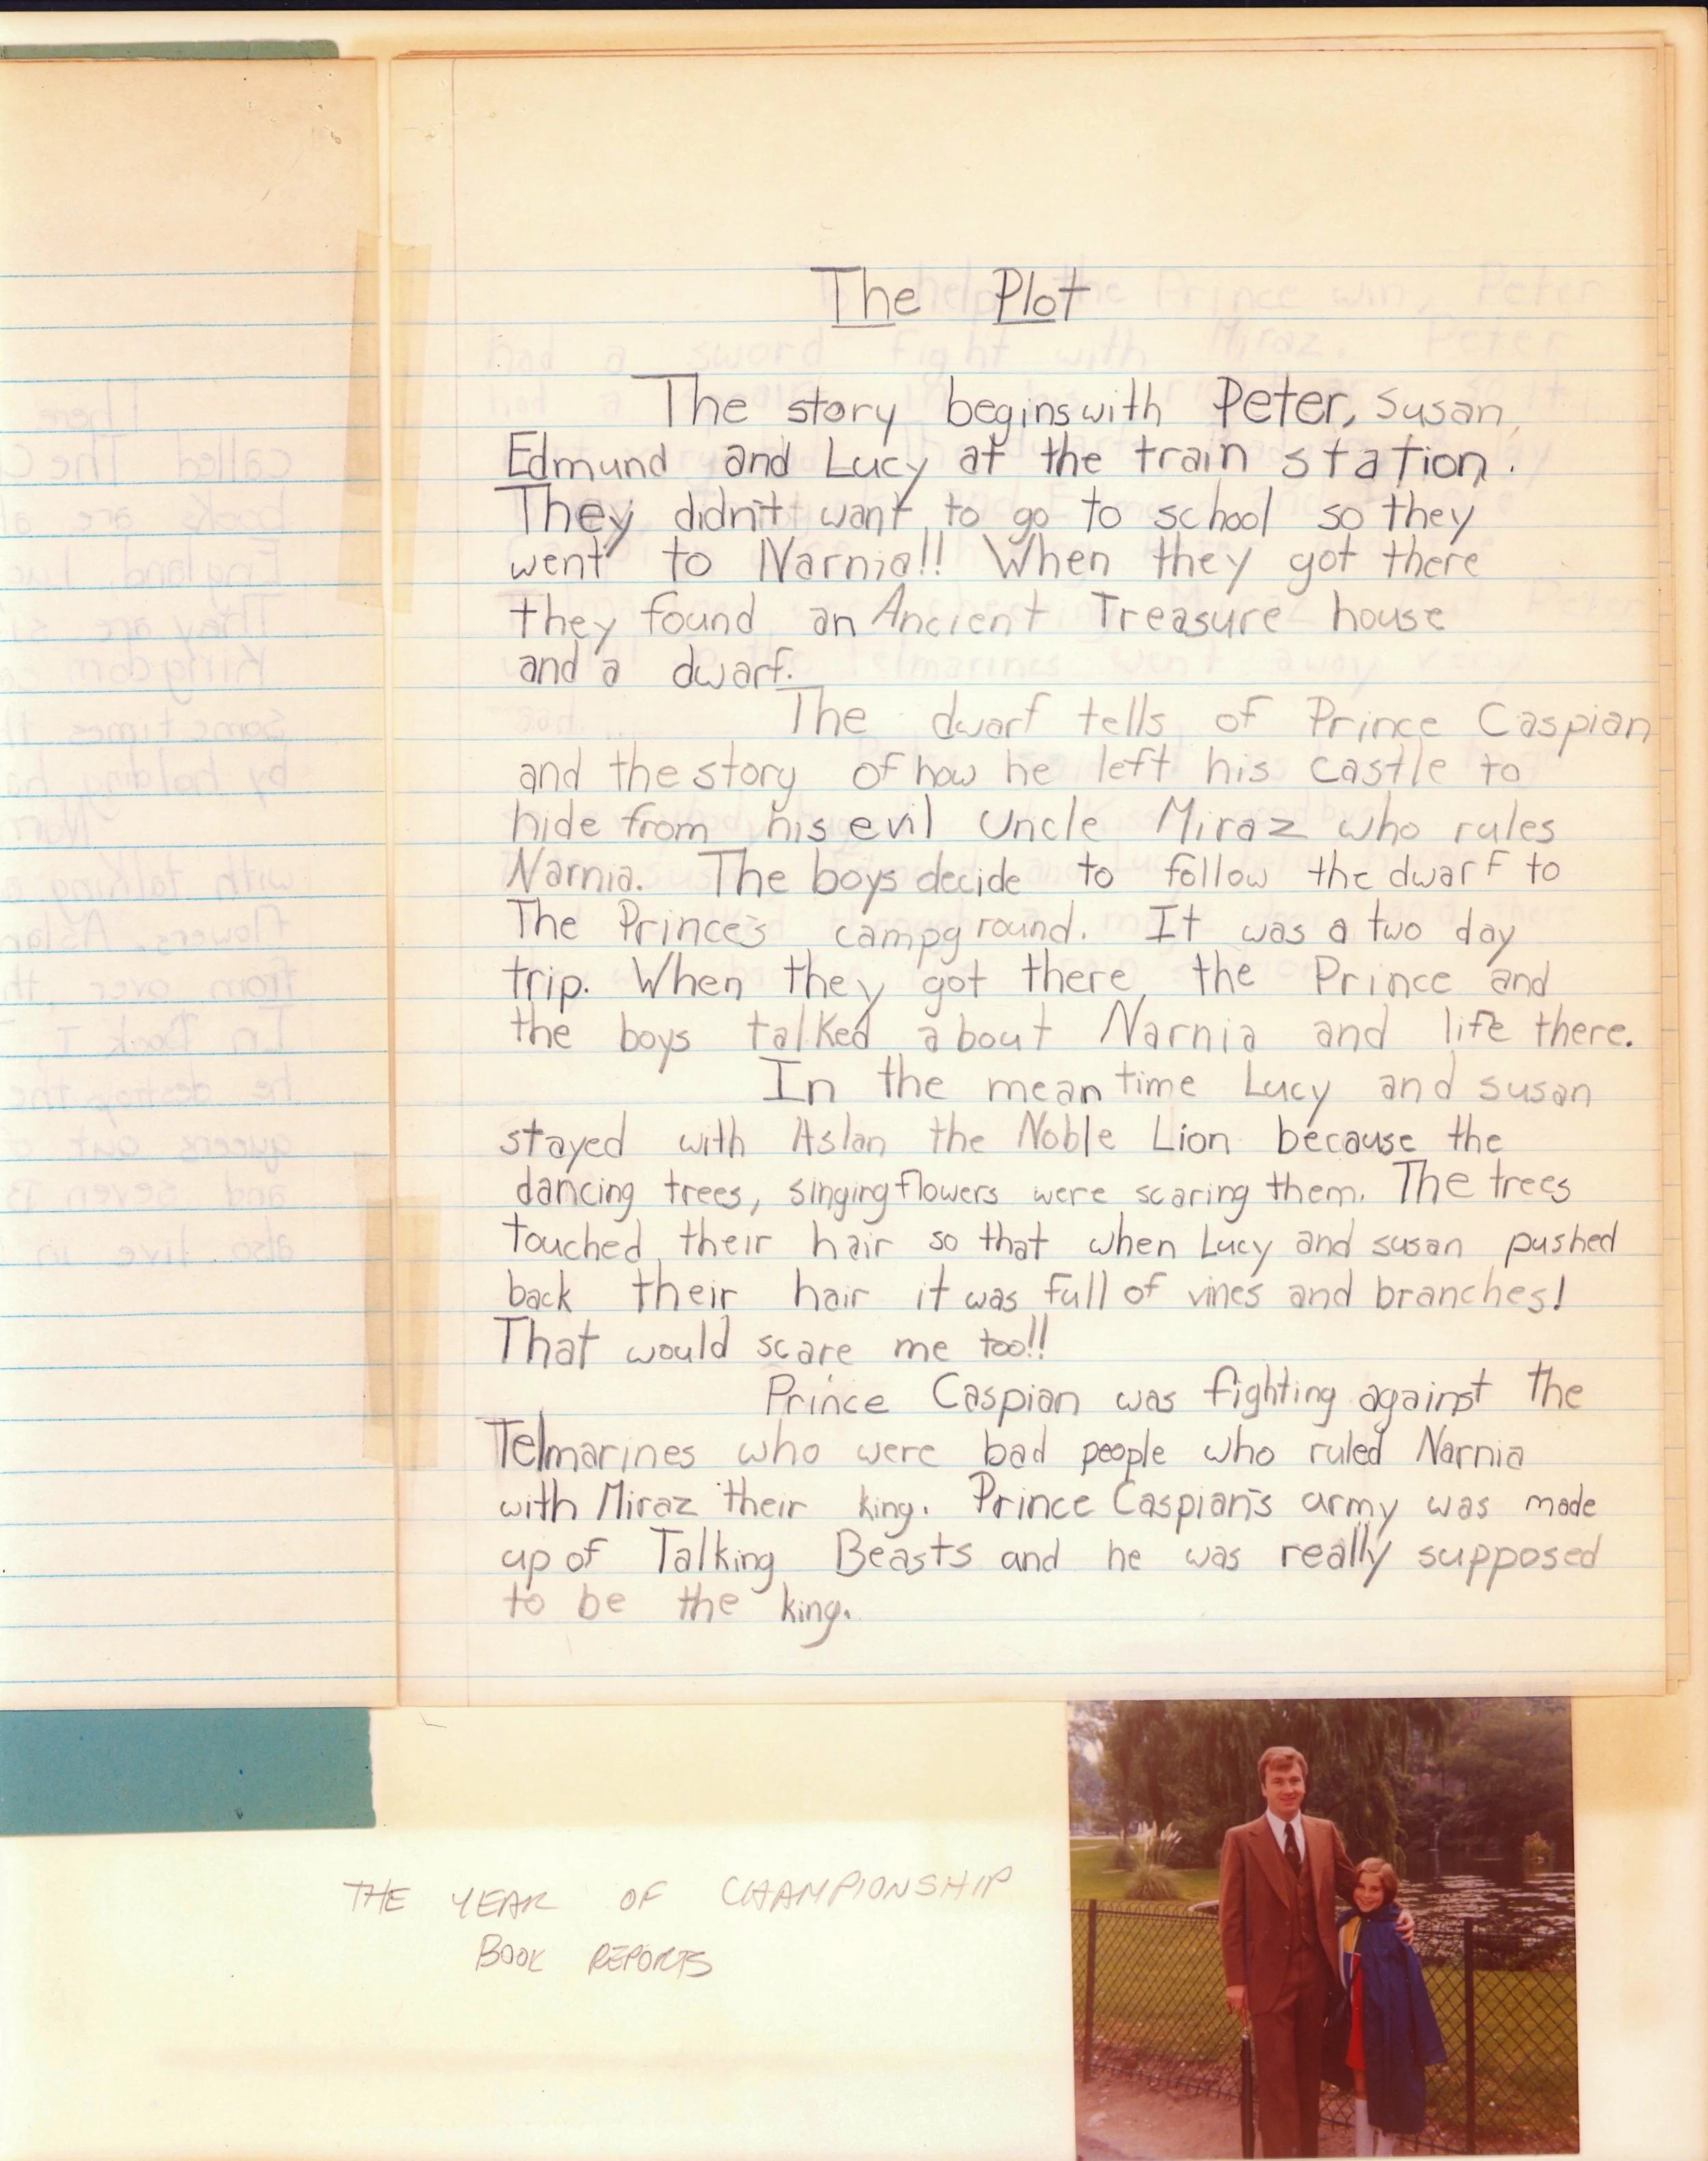 The Plot
The story begins with Peter, Susan,
Edmund and Lucy at the train station.
They didn't want to go to school so they
went to Narnia!! When they got there
they found an Ancient Treasure house
and a dwarf.
The dwarf tells of Prince Caspian
and the story of how he left his castle to
hide from his evil Uncle Miraz who rules
Narnia. The boys decide to follow the dwarf to
The Prince's campground. It was a two day
trip. When they got there, the Prince and
the boys talked about Narnia and life there.
In the mean time Lucy and susan
stayed with Aslan the Noble Lion because the
dancing trees, singing flowers were scaring them. The trees
touched their hair so that when Lucy and susan pushed
back their hair it was full of vines and branches!
That would scare me too!!
Prince Caspian was fighting against the
Telmarines who were bad people who ruled Narnia
with Miraz their king. Prince Caspian's army was made
up of Talking Beasts and he was really supposed
to be the king.
THE YEAR OF CHAMPIONSHIP
BOOK REPORTS